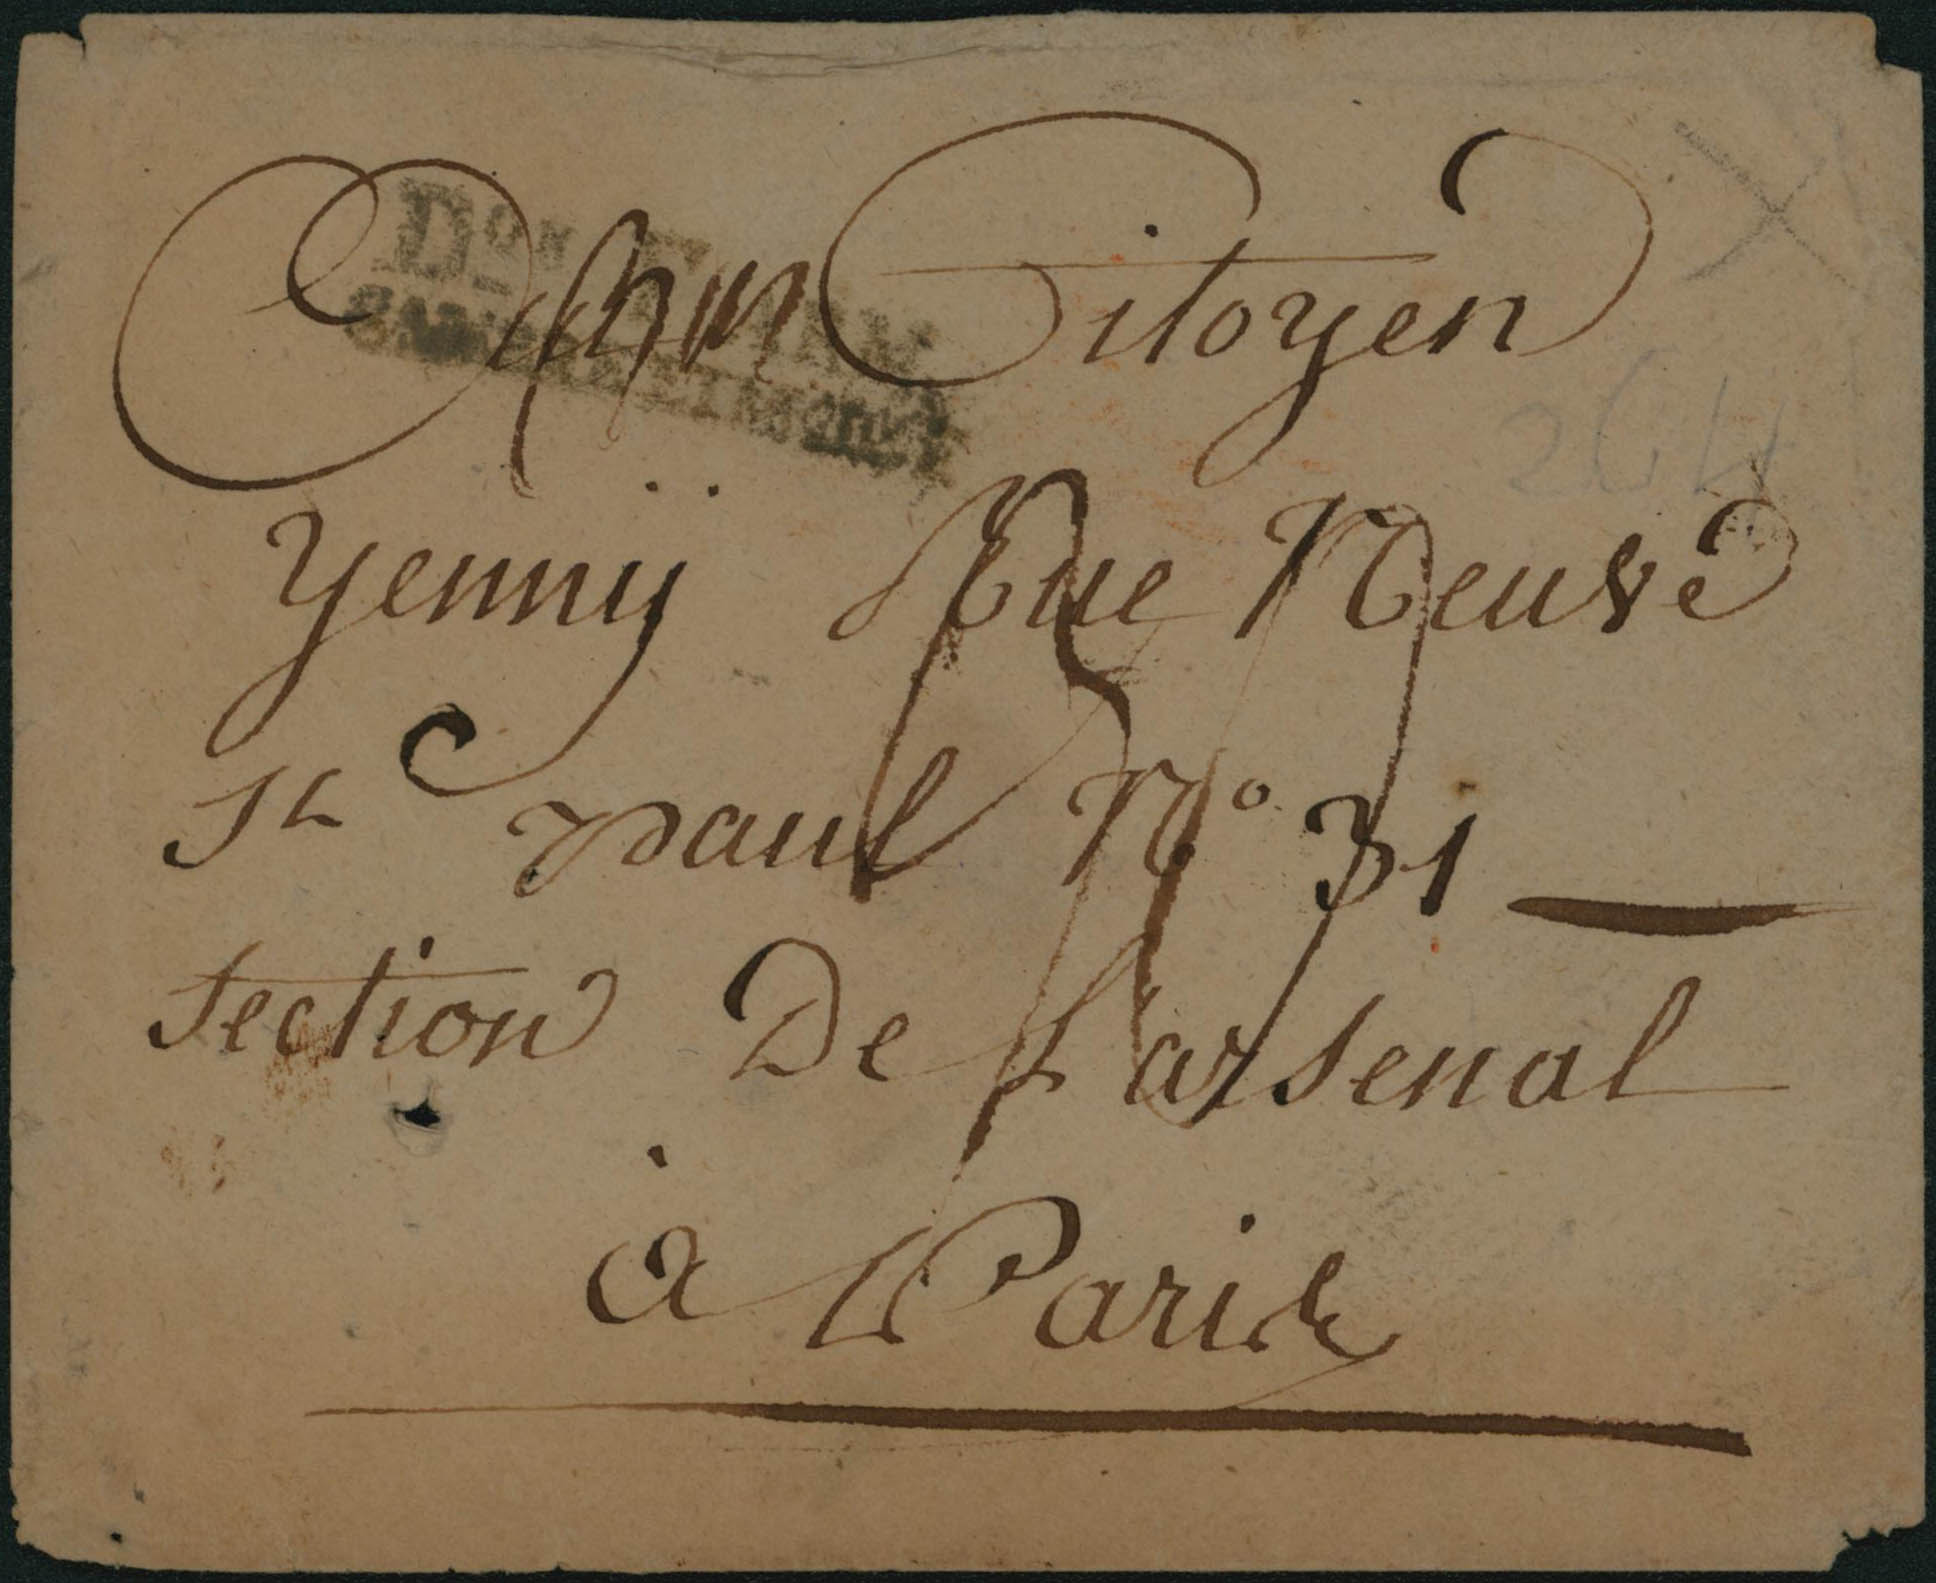 Citoyen
Yenny Rue Neuve
St paul N° 31
Section De L'arsenal
à Paris